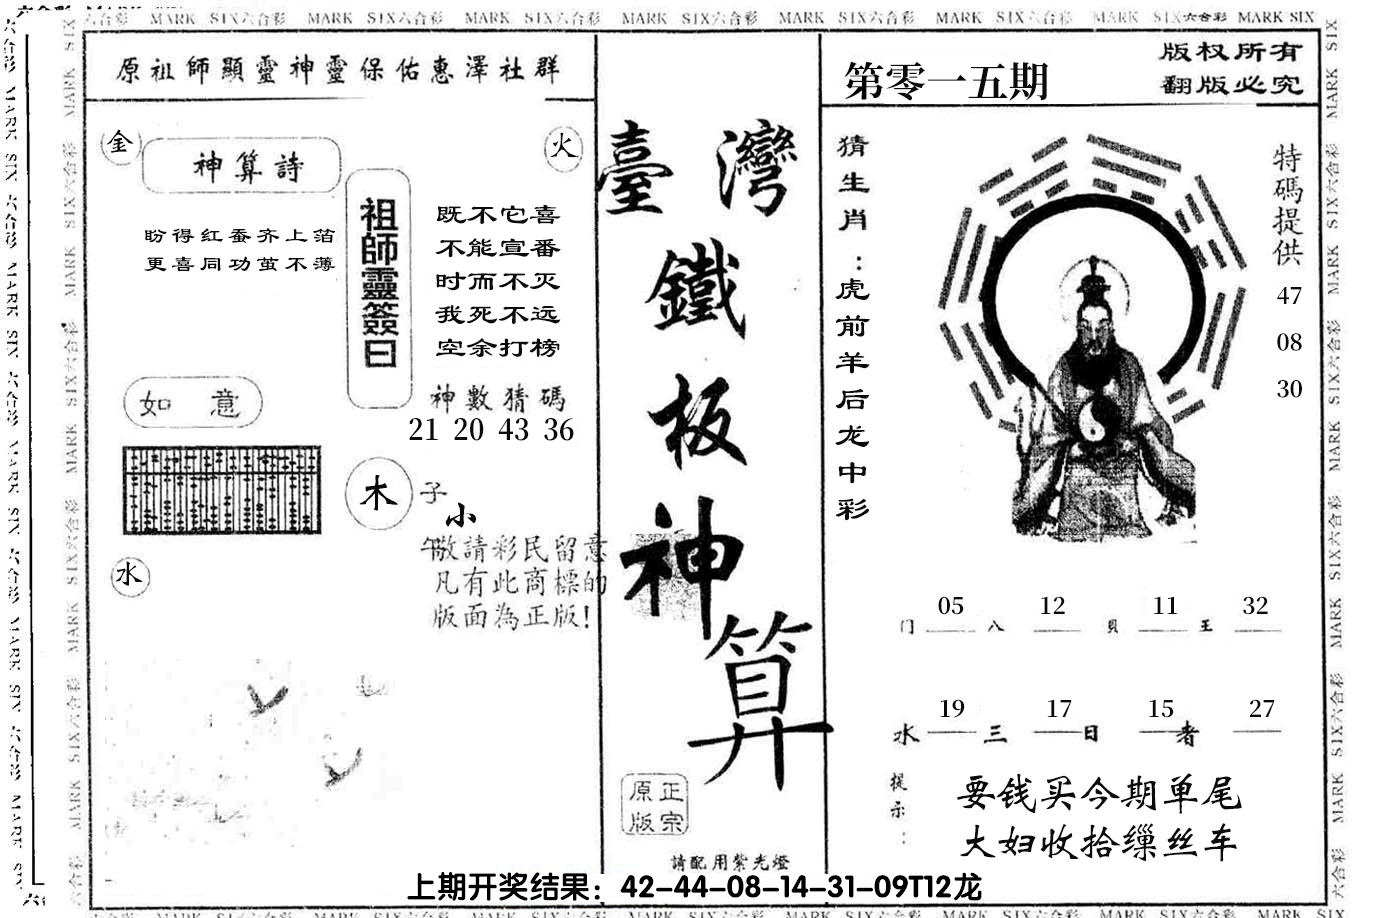 六合彩 MARK SIX六合彩 MARK SIX六合彩 MARK SIX六合彩 MARK SIX六合彩 MARK SIX六合彩 MARK SIX六合彩 MARK SIX六合彩 MARK SIX
原祖師顯靈神靈保佑惠澤社群
金
火
神算詩
盼得红蚕齐上箔
更喜同功茧不薄
祖師靈簽曰
既不它喜
不能宣番
时而不灭
我死不远
空余打榜
神數猜碼
21 20 43 36
如意
木
子
小
午
水
敬請彩民留意
凡有此商標的
版面為正版!
臺灣
鐵
板
神
算
正宗
原版
請配用紫光燈
第零一五期
版权所有
翻版必究
猜生肖:虎前羊后龙中彩
特碼提供
47
08
30
05 12 11 32
门 八 貝 王
19 17 15 27
水 三 日 者
提示:
要钱买今期单尾
大妇收拾缫丝车
上期开奖结果：42-44-08-14-31-09T12龙